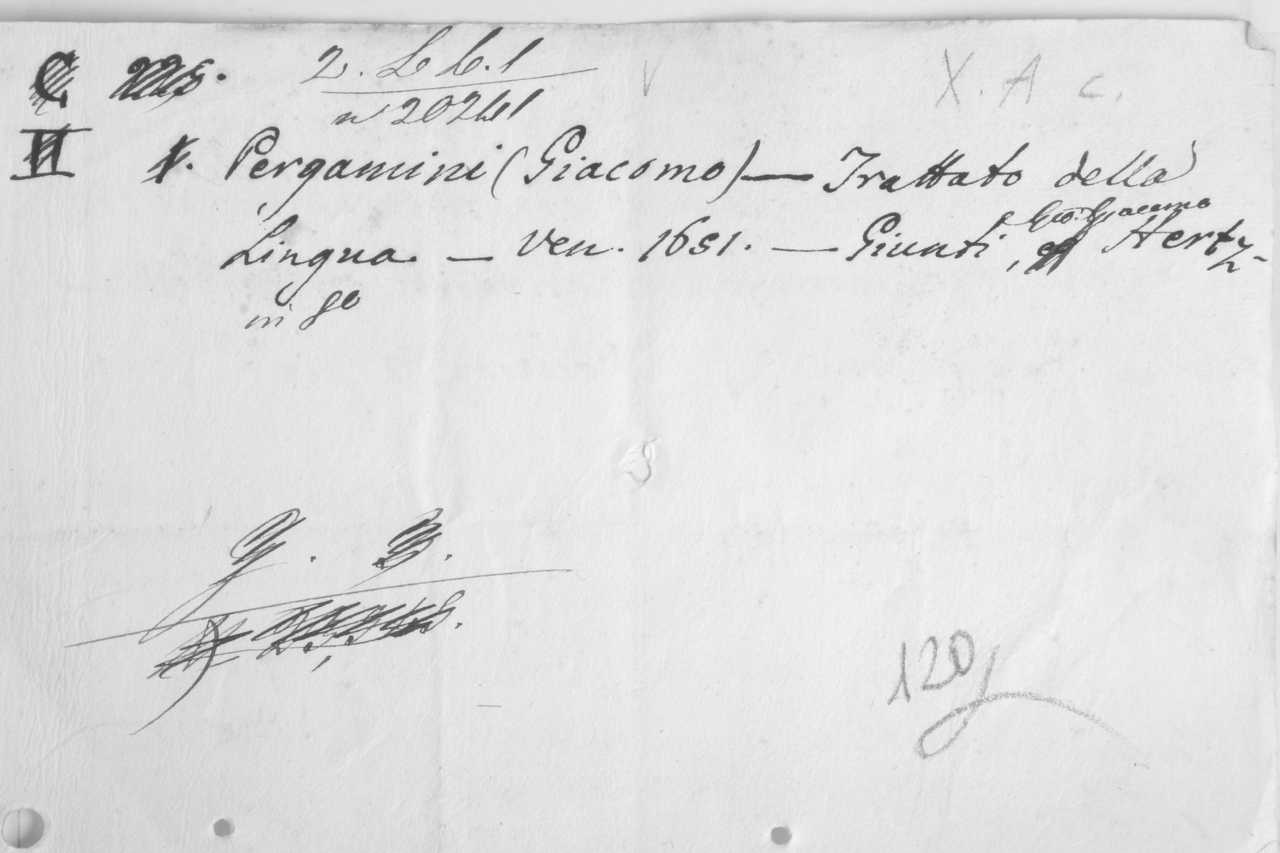 C 225. 2. L b. 1 V X. A c.
n 20241
II 1. Pergamini (Giacomo) — Trattato della
Lingua — Ven. 1651. — Giunti, Gio: Giacomo Hertz-
in 8º
G. B.
120